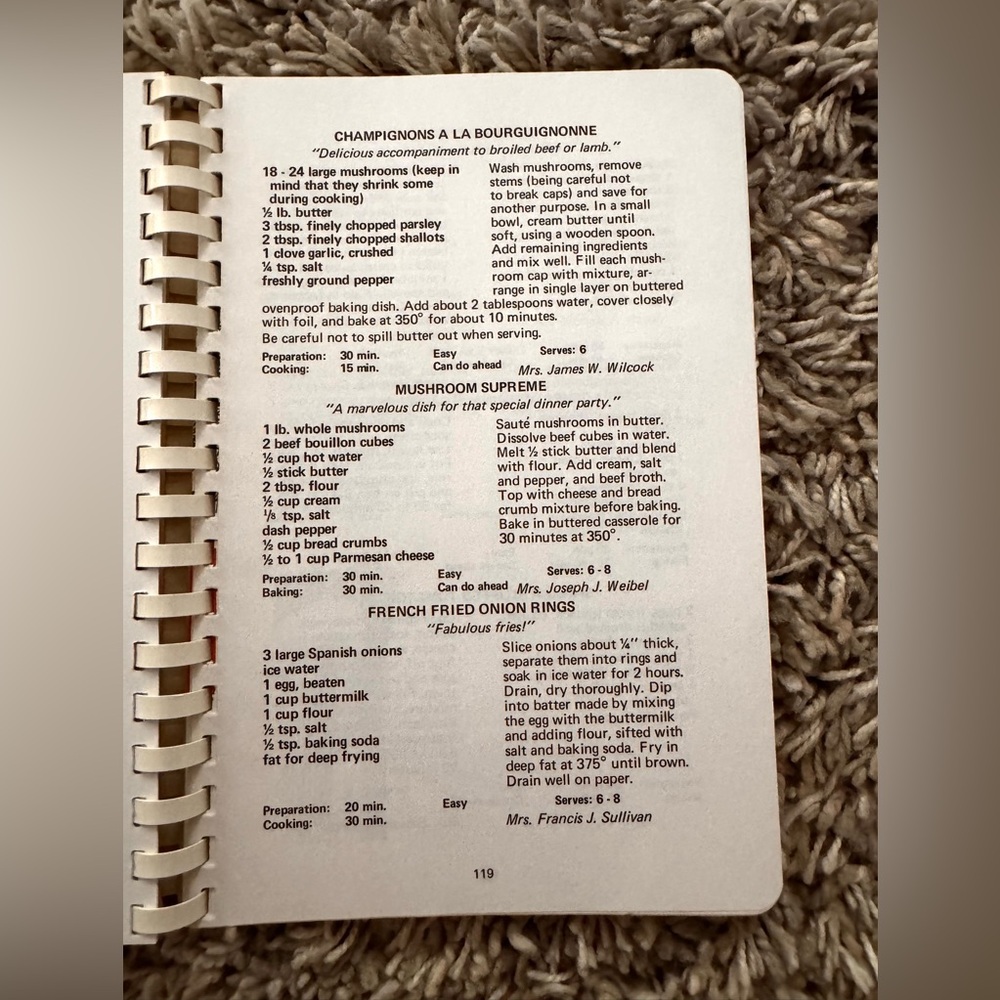 CHAMPIGNONS A LA BOURGUIGNONNE
"Delicious accompaniment to broiled beef or lamb."
18 - 24 large mushrooms (keep in
mind that they shrink some
during cooking)
½ lb. butter
3 tbsp. finely chopped parsley
2 tbsp. finely chopped shallots
1 clove garlic, crushed
¼ tsp. salt
freshly ground pepper
Wash mushrooms, remove
stems (being careful not
to break caps) and save for
another purpose. In a small
bowl, cream butter until
soft, using a wooden spoon.
Add remaining ingredients
and mix well. Fill each mush-
room cap with mixture, ar-
range in single layer on buttered
ovenproof baking dish. Add about 2 tablespoons water, cover closely
with foil, and bake at 350° for about 10 minutes.
Be careful not to spill butter out when serving.
Preparation: 30 min. Easy Serves: 6
Cooking: 15 min. Can do ahead Mrs. James W. Wilcock
MUSHROOM SUPREME
"A marvelous dish for that special dinner party."
1 lb. whole mushrooms
2 beef bouillon cubes
½ cup hot water
½ stick butter
2 tbsp. flour
½ cup cream
⅛ tsp. salt
dash pepper
½ cup bread crumbs
½ to 1 cup Parmesan cheese
Sauté mushrooms in butter.
Dissolve beef cubes in water.
Melt ½ stick butter and blend
with flour. Add cream, salt
and pepper, and beef broth.
Top with cheese and bread
crumb mixture before baking.
Bake in buttered casserole for
30 minutes at 350°.
Preparation: 30 min. Easy Serves: 6 - 8
Baking: 30 min. Can do ahead Mrs. Joseph J. Weibel
FRENCH FRIED ONION RINGS
"Fabulous fries!"
3 large Spanish onions
ice water
1 egg, beaten
1 cup buttermilk
1 cup flour
½ tsp. salt
½ tsp. baking soda
fat for deep frying
Slice onions about ¼" thick,
separate them into rings and
soak in ice water for 2 hours.
Drain, dry thoroughly. Dip
into batter made by mixing
the egg with the buttermilk
and adding flour, sifted with
salt and baking soda. Fry in
deep fat at 375° until brown.
Drain well on paper.
Preparation: 20 min. Easy Serves: 6 - 8
Cooking: 30 min. Mrs. Francis J. Sullivan
119